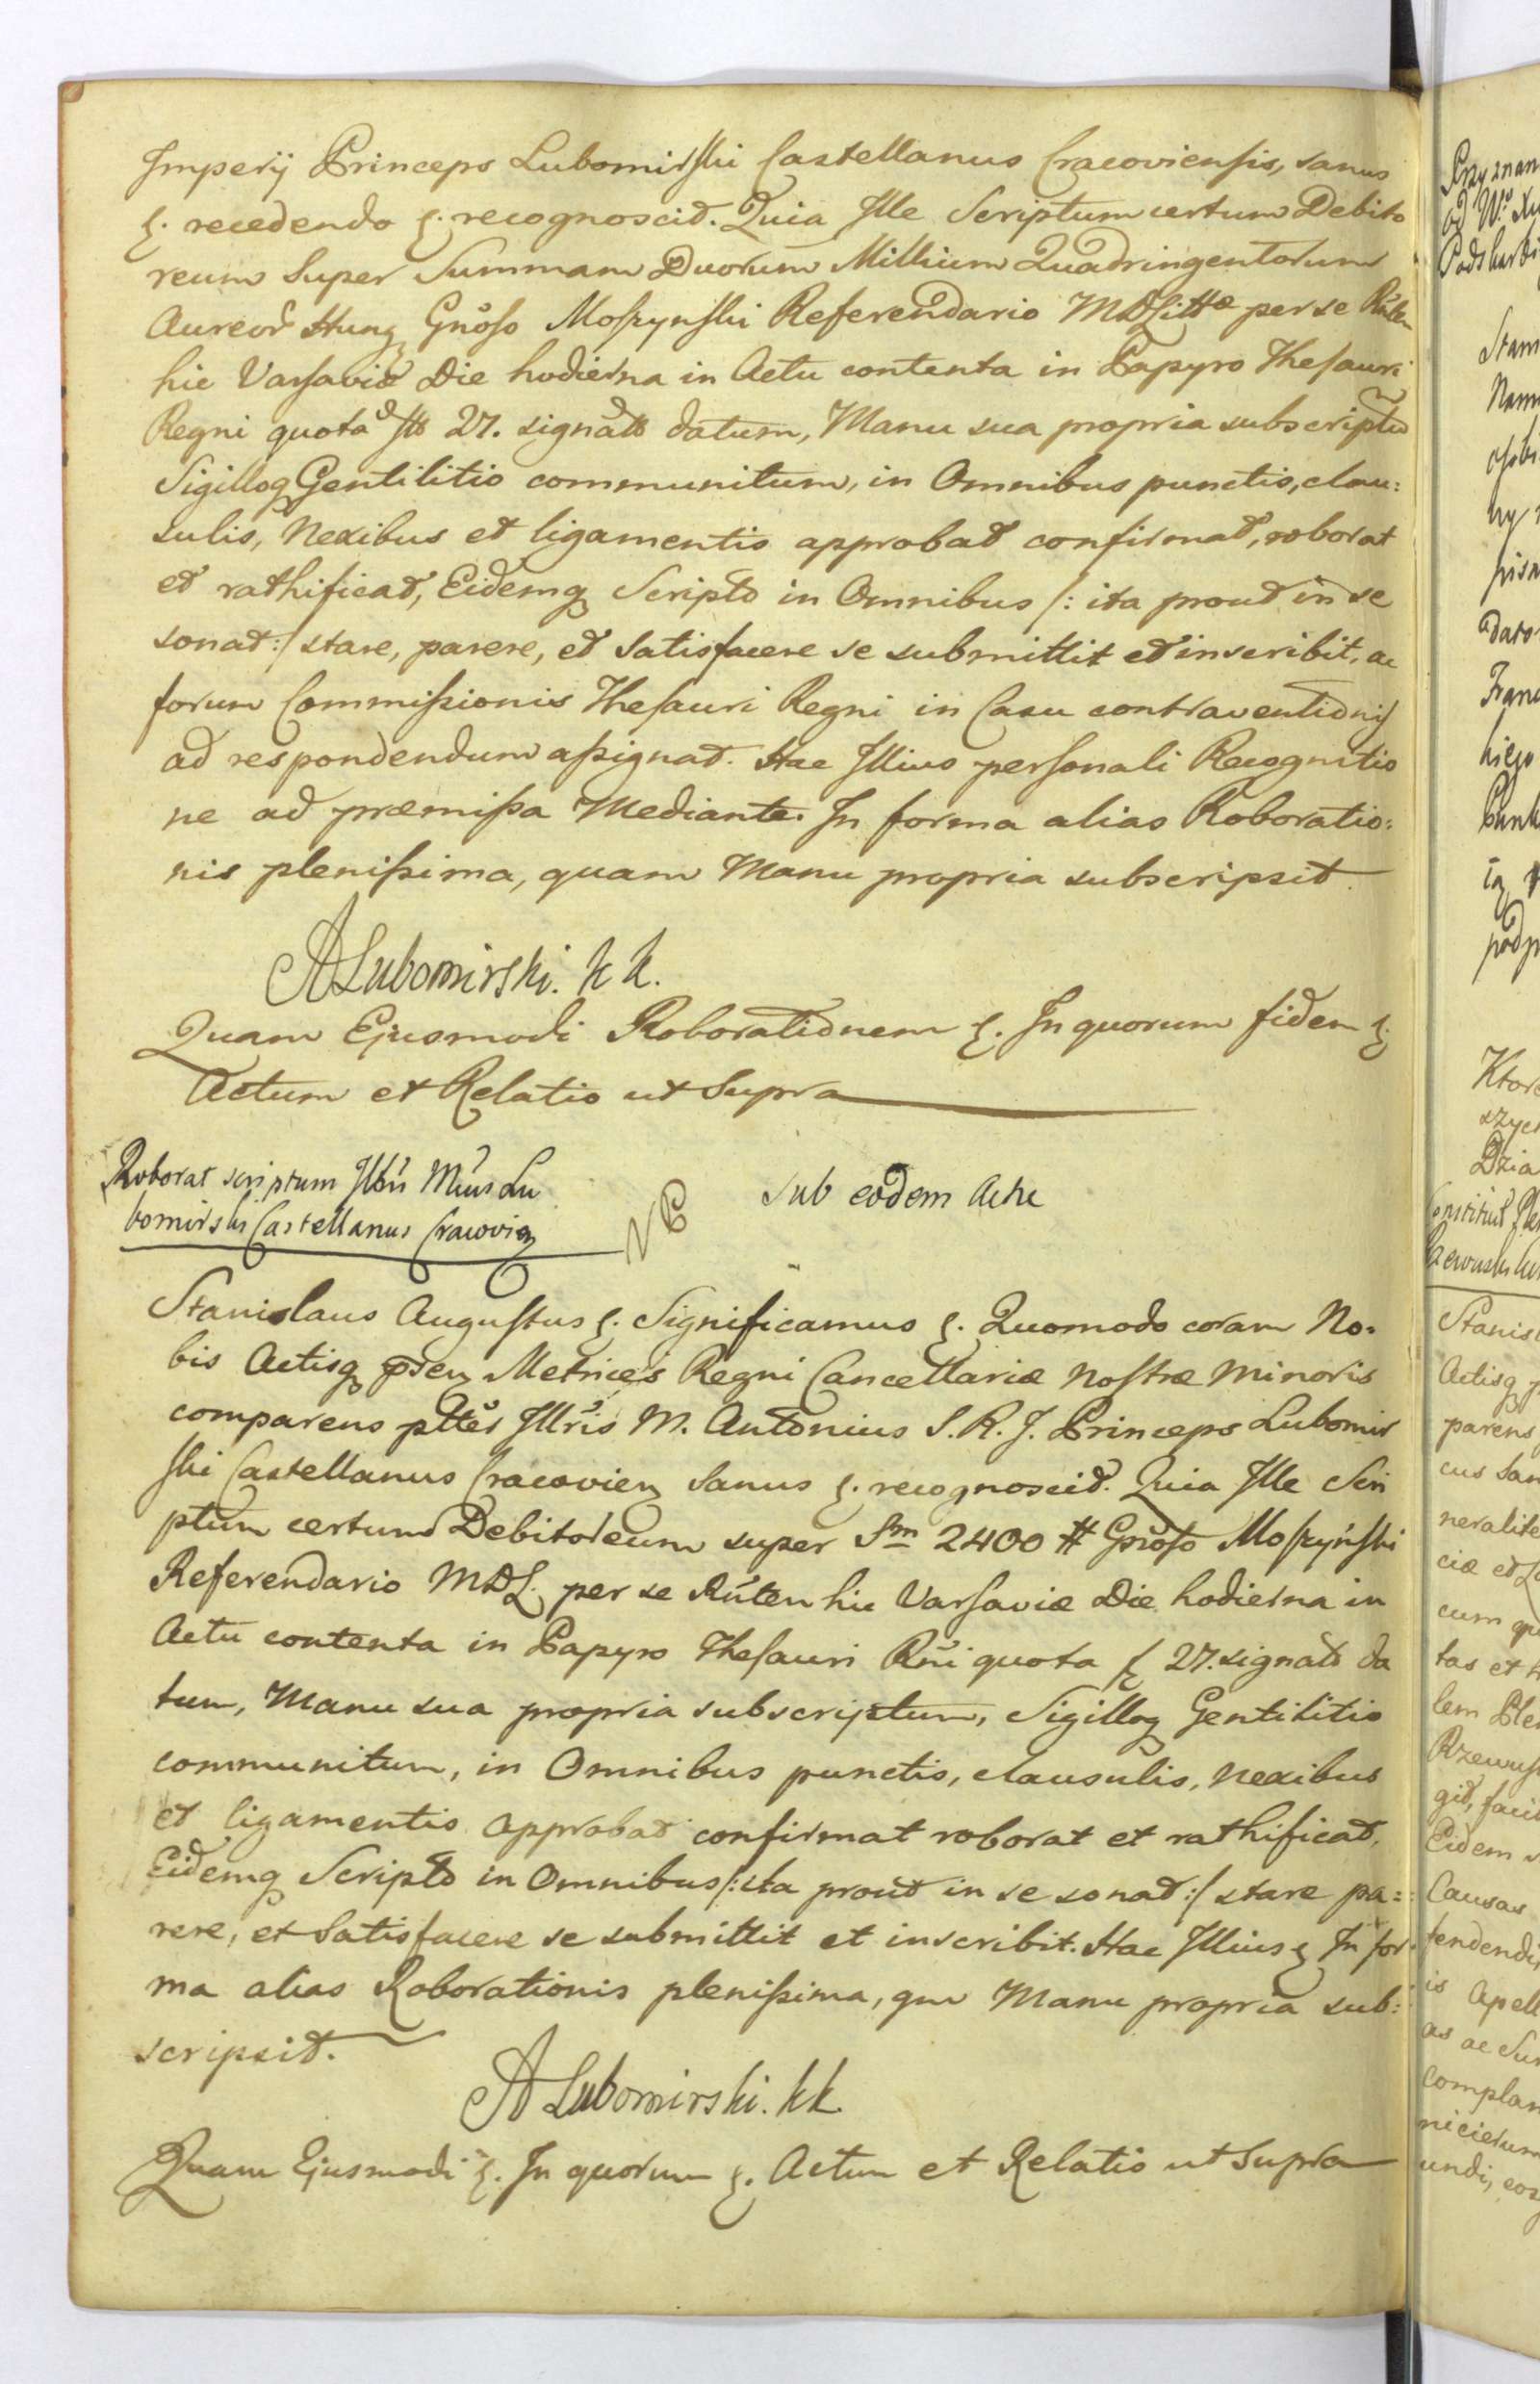 Imperij Princeps Lubomirski Castellanus Cracoviensis, sanus
&. recedendo &. recognoscit. Quia Ille Scriptum certum Debito
reum Super Summam Duorum Millium Quadringentorum
Aureor̃ Hung Gnoso Moszynski Referendario MDLittæ per se
hic Varsaviæ Die hodierna in Actu contenta in Papyro Thesauri
Regni quota 27. signato datum, Manu sua propria subscriptũ
Sigilloq Gentilitio communitum, in Omnibus punctis, clau:
sulis, Nexibus et ligamentis approbat confirmat, roborat
et rathificat, Eidemq Scripto in Omnibus /: ita prout in se
sonat :/ stare, parere, et Satisfacere se submittit et inscribit, ac
forum Commissionis Thesauri Regni in Casu contraventionis
ad respondendum assignat. Hac Illius personali Recognitio
ne ad præmissa Mediante. In forma alias Roboratio:
nis plenissima, quam Manu propria subscripsit.
ALubomirski. k k.
Quam Ejusmodi Roborationem &. In quorum fidem &
Actum et Relatio ut Supra
Roborat scriptum Lu
bomirski Castellanus Cracovien
Sub eodem Actu
Stanislaus Augustus &. Significamus &. Quomodo coram No.
bis Actisq Metrices Regni Cancellariæ Nostræ Minoris
comparens Illris M. Antonius S. R. J. Princeps Lubomir
ski Castellanus Cracovien Sanus &. recognoscit. Quia Ille Scri
ptum certum Debitoreum super Sm 2400 # Gnoso Moszyński
Referendario MDL. per se hic Varsaviæ Die hodierna in
Actu contenta in Papyro Thesauri Rni quota 27. signato da
tum, Manu sua propria subscriptum, Sigilloq Gentilitio
communitum, in Omnibus punctis, clausulis, Nexibus
et ligamentis approbat confirmat roborat et rathificat,
Eidemq Scripto in Omnibus /: ita prout in se sonat :/ stare pa:
rere, et Satisfacere se submittit et inscribit. Hac Illius & In for
ma alias Roborationis plenissima, qm Manu propria sub:
scripsit.
A Lubomirski. kk.
Quam Ejusmodi &. In quorum &. Actum et Relatio ut Supra